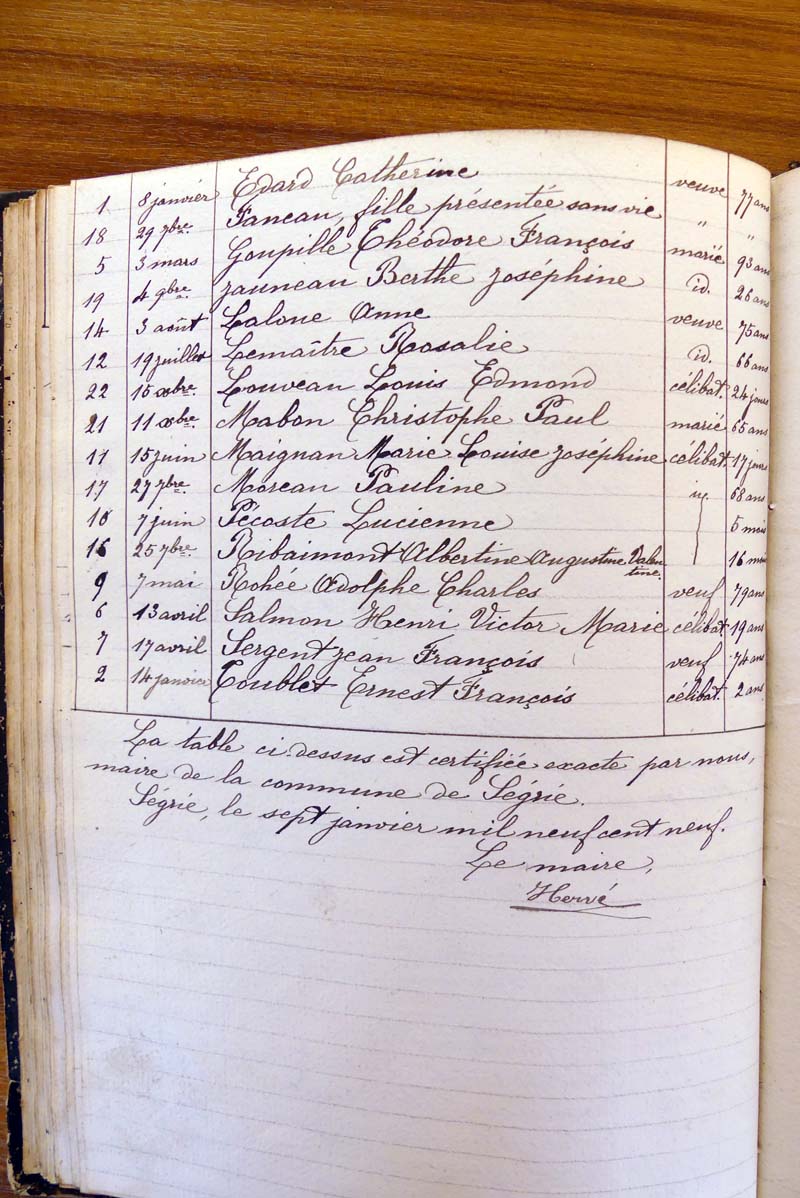 1 8 janvier Edard Catherine veuve 77 ans
18 29 7bre. Faneau, fille présentée sans vie " "
5 3 mars Goupille Théodore François marié 93 ans
19 4 9bre. Jauneau Berthe Joséphine id. 26 ans
14 3 août Laloue Anne veuve 75 ans
12 19 juillet Lemaître Rosalie id. 66 ans
22 15 xbre. Louveau Louis Edmond célibat. 24 jours
21 11 xbre. Mabon Christophe Paul marié 65 ans
11 15 juin Maignan Marie Louise Joséphine célibat. 17 jours
17 27 7bre. Moreau Pauline 68 ans
10 7 juin Pécoste Lucienne 5 mois
16 25 7bre. Ribaimont Albertine Augustine Valentine. 16 mois
9 7 mai Rohée Adolphe Charles veuf 79 ans
6 13 avril Salmon Henri Victor Marie célibat. 19 ans
7 17 avril Sergent Jean François veuf 74 ans
2 14 janvier Toublet Ernest François célibat. 2 ans
La table ci-dessus est certifiée exacte par nous,
maire de la commune de Ségrie.
Ségrie, le sept janvier mil neuf cent neuf.
Le maire,
Hervé